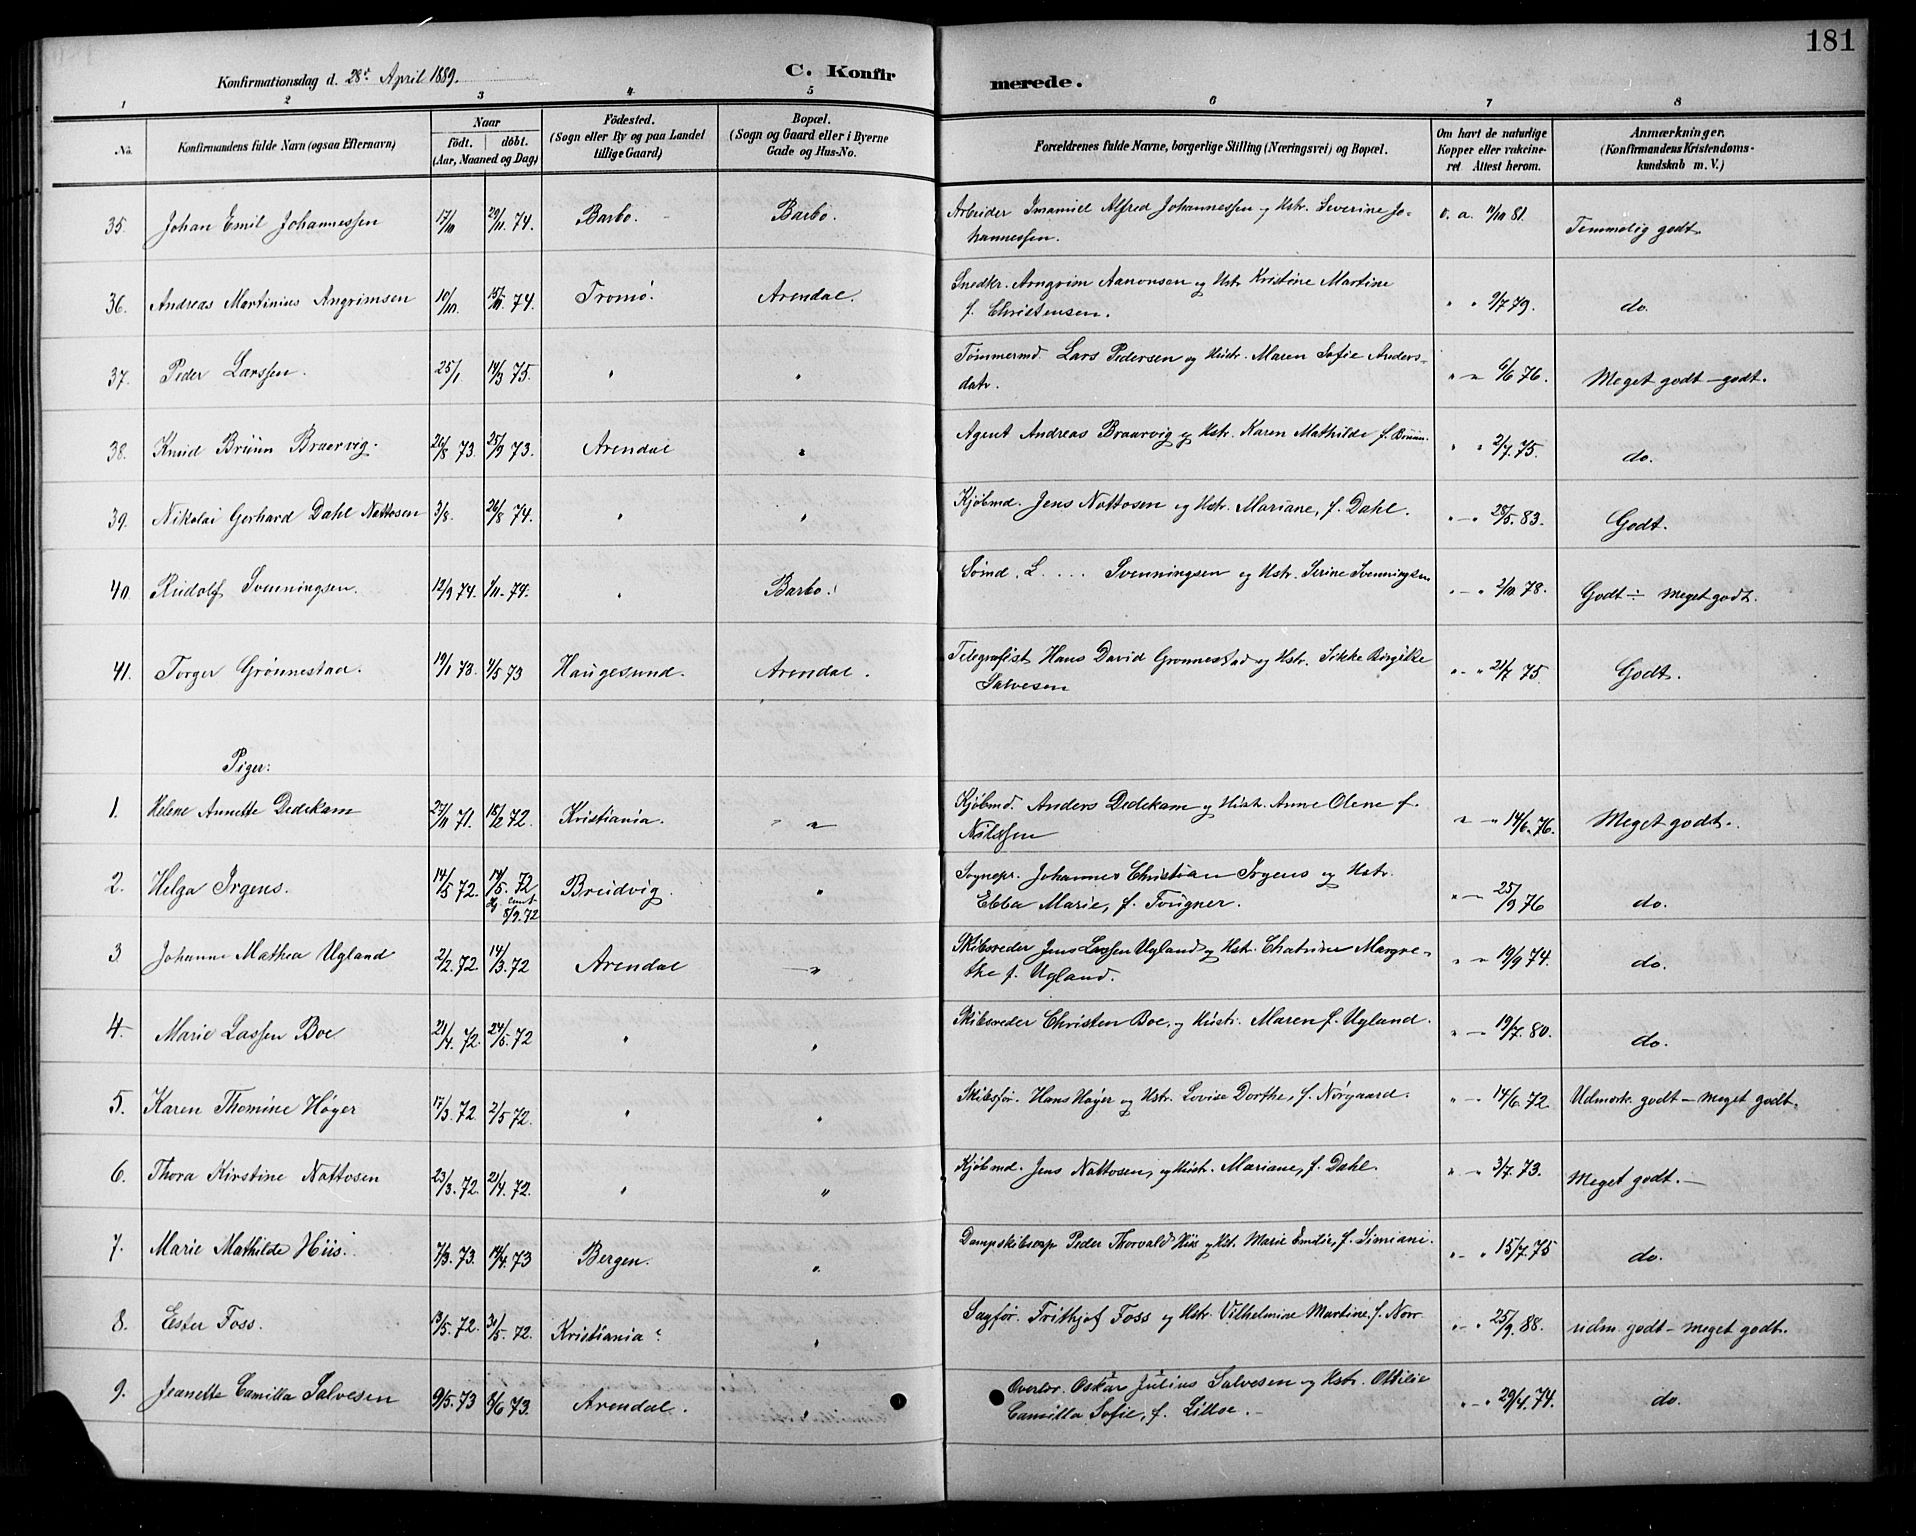 181
Konfirmationsdag d. 28de April 1889.
C. Konfirmerede.
1 2 3 4 5 6 7 8
No.
Konfirmandens fulde Navn (ogsaa Efternavn)
Naar
födt. döbt.
(Aar, Maaned og Dag)
Födested.
(Sogn eller By og paa Landet
tillige Gaard)
Bopæl.
(Sogn og Gaard eller i Byerne
Gade og Hus-No.
Forældrenes fulde Navne, borgerlige Stilling (Næringsvei) og Bopæl.
Om havt de naturlige
Kopper eller vakcine-
ret Attest herom.
Anmærkninger.
(Konfirmandens Kristendoms-
kundskab m. V.)
35. Johan Emil Johannessen 17/10 29/11 74. Barbo. Barbo. Arbeider Imanuel Alfred Johannessen og Hstr. Severine Jo-
hannessen. v. a. 11/10 81. Temmelig godt.
36. Andreas Martinius Angrimsen 10/10. 15/11 74. Tromö. Arendal. Snedker. Arngrim Aanonsen og Hstr Kristine Martine
f. Christensen. " " 9/7 79. do.
37. Peder Larssen. 25/1. 14/3 75. " " Tömmermd. Lars Pedersen og Hustr. Maren Sofie Anders-
datr. " " 6/6 76. Meget godt - godt.
38. Knud Brüün Braarvig. 26/8 73. 25/9 73. Arendal " Agent Andreas Braarvig og Hstr. Karen Mathilde f. Brüün. " " 2/7. 75. do.
39. Nikolai Gerhard Dahl Nattosen 3/8. 26/8 74. " " Kjöbmd. Jens Nattosen og Hstr. Mariane, f. Dahl. " - " 28/5. 83. Godt.
40. Rudolf Svenningsen. 12/9 74. 1/11 - 74. " Barbo. Sömd. L. ... Svenningsen og Hstr. Serine Svenningsen " - " 2/10. 78. Godt ÷ meget godt.
41. Torger Grönnestad. 19/1 73. 4/5 73 Haugesund. Arendal. Telegrafist Hans David Grönnestad og Hstr. Sikke Birgitte
Salvesen " - " 21/7 75. Godt.
Piger:
1. Helene Annette Dedekam 27/11 71. 18/2 72. Kristiania. " Kjöbmd. Anders Dedekam og Hustr. Anne Olene f.
Nilssen " " 14/6. 76. Meget godt.
2. Helga Irgens. 14/5 72. 14/5. 72 8/9. 72 Breidvig. " Sognepr. Johannes Christian Irgens og Hstr.
Ebba Marie, f. Fougner. " - 25/9 76 do.
3 Johanne Mathea Ugland 2/2. 72. 14/3. 72 Arendal " Skibsreder Jens Lassen Ugland og Hstr. Chatrine Margre-
the f. Ugland. " " 19/9 74. do.
4. Marie Lassen Boe 21/4. 72. 24/5. 72 " " Skibsreder Christen Boe, og Hustr. Maren f. Ugland. " - 19/7. 80. do.
5. Karen Thomine Höyer 17/3. 72. 2/5 72. " " Skibsför. Hans Höyer og Hstr. Lovise Dorthe, f. Nörgaard. " - 14/6. 72. Udmrk. godt - meget godt.
6. Thora Kirstine Nattosen 23/3. 72. 21/4. 72. " " Kjöbmd. Jens Nattosen, og Hustr. Mariane, f. Dahl. " - 3/7. 73. Meget godt. -
7. Marie Mathilde Hiis. 7/3. 73. 14/4. 73 Bergen. " Dampskibsexp Peder Thorvald Hiis og Hstr. Marie Emilie, f. Simiani. " - " 15/7. 75 do.
8. Ester Foss. 13/5. 72. 30/5. 72. Kristiania " Sagför. Frithjof Foss og Hstr. Vilhelmine Martine f. Norr " - " 25/9. 88. udm. godt - meget godt.
9. Jeanette Camilla Salvesen 9/5. 73 8/6 73. Arendal. " Overlær. Oskar Julius Salvesen og Hstr. Ottilie
Camilla Sofie, f. Lilloe. - " - " 29/4. 74. do.